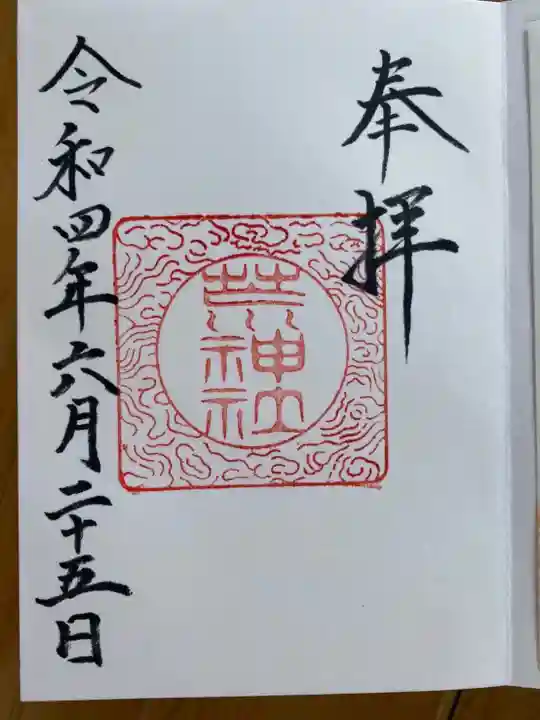 奉拝
神社
令和四年六月二十五日